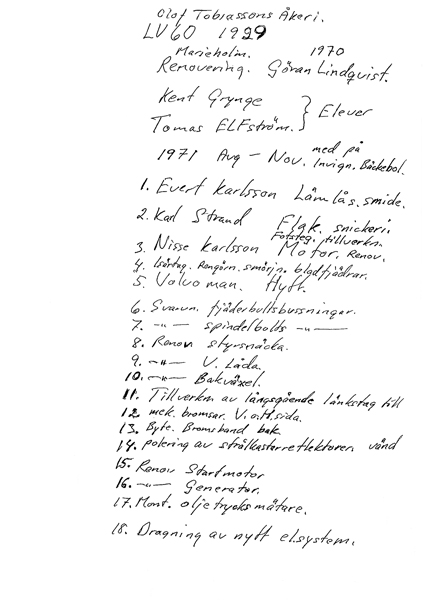 Olof Tobiassons Åkeri.
LV60 1929
Marieholm. 1970
Renovering. Göran Lindquist.
Kent Grynge
Tomas ELFström. } Elever
1971 Aug - Nov. med på
Invign. Bäckebol.
1. Evert Karlsson Lämlås. smide.
2. Karl Strand Flak. snickeri.
Fotsteg. tillverkn.
3. Nisse Karlsson Motor. Renov.
4. Isärtag. Rengörn. smörjn. bladfjädrar.
5. Volvo man. Hytt.
6. Svarvn. fjäderbultsbussningar.
7. -"- spindelbolds -"-
8. Renov styrsnäcka.
9. -"- V. Låda.
10. -"- Bakväxel.
11. Tillverkn av långsgående länkstag till
12 mek. bromsar. V. o. H. sida.
13. Byte. Bromsband bak.
14. polering av strålkastarreflektorer
15. Renov Startmotor
16. -"- Generator.
17. Mont. oljetrycksmätare.
18. Dragning av nytt el.system.